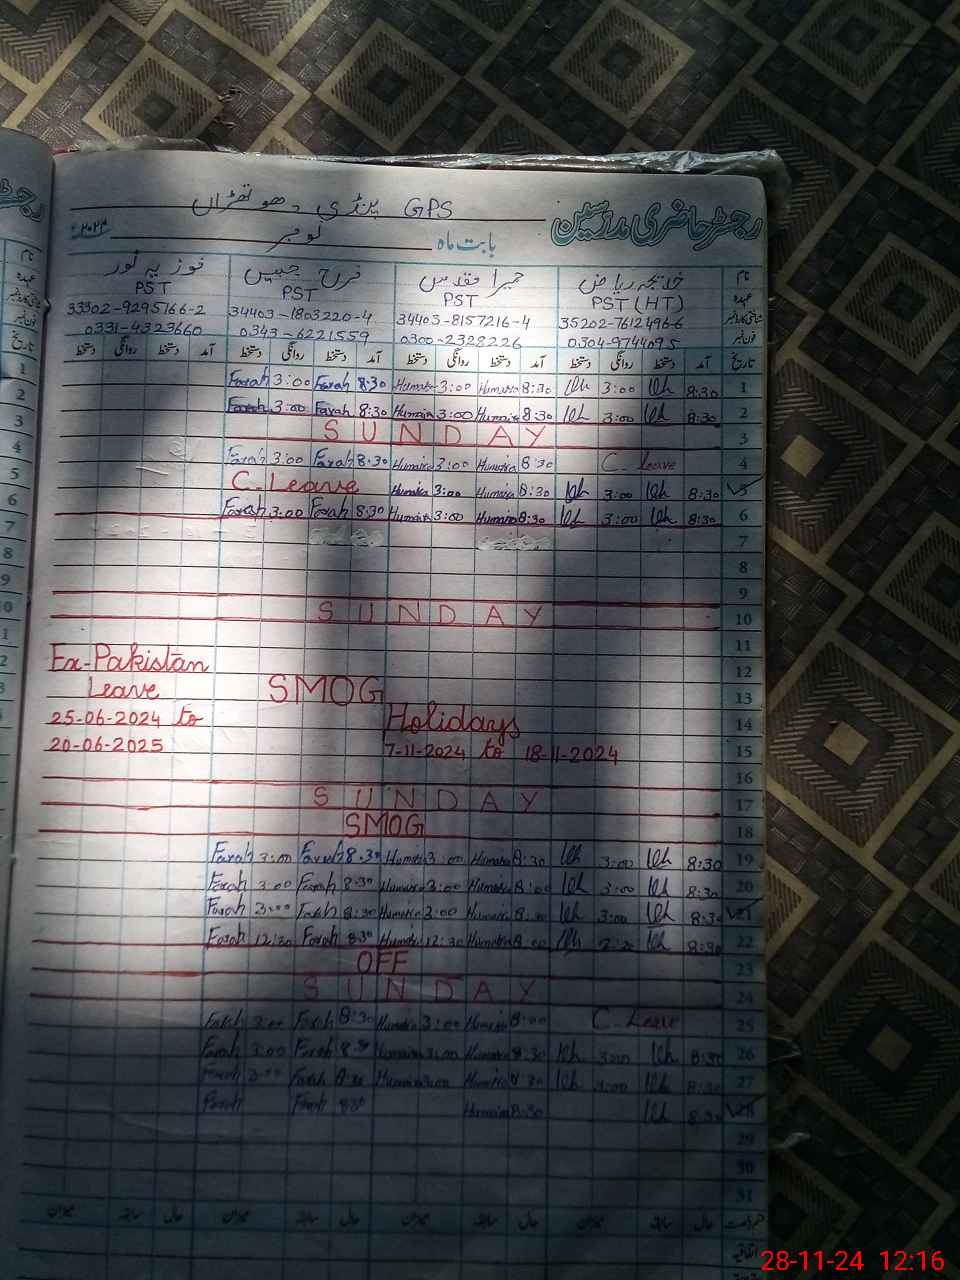 رجسٹر حاضری مدرسین
GPS پنڈی دھوتھڑاں
بابت ماہ نومبر ۲۰۲۴ء
نام خدیجہ ریاض حمیرا مقدس فرح جبیں فوزیہ نور
عہدہ PST (HT) PST PST PST
شناختی کارڈ نمبر 35202-7612496-6 34403-8157216-4 34403-1803220-4 33302-9295766-2
فون نمبر 0304-9744095 0300-2328226 0343-6221559 0331-4323660
تاریخ آمد دستخط روانگی دستخط آمد دستخط روانگی دستخط آمد دستخط روانگی دستخط آمد دستخط روانگی دستخط
Farah 3:00 Farah 8:30 Humaira 3:00 Humaira 8:30 3:00 8:30 1
Farah 3:00 Farah 8:30 Humaira 3:00 Humaira 8:30 3:00 8:30 2
SUNDAY 3
Farah 3:00 Farah 8:30 Humaira 3:00 Humaira 8:30 C-Leave 4
C-Leave Humaira 3:00 Humaira 8:30 3:00 8:30 5
Farah 3:00 Farah 8:30 Humaira 3:00 Humaira 8:30 3:00 8:30 6
7
8
9
SUNDAY 10
11
Ex-Pakistan 12
Leave SMOG 13
25-06-2024 to Holidays 14
20-06-2025 7-11-2024 to 18-11-2024 15
16
SUNDAY 17
SMOG 18
Farah 3:00 Farah 8:30 Humaira 3:00 Humaira 8:30 3:00 8:30 19
Farah 3:00 Farah 8:30 Humaira 3:00 Humaira 8:00 3:00 8:30 20
Farah 3:00 Farah 8:30 Humaira 3:00 Humaira 8:30 3:00 8:30 21
Farah 12:30 Farah 8:30 Humaira 12:30 Humaira 8:00 8:30 22
OFF 23
SUNDAY 24
Farah 3:00 Farah 8:30 Humaira 3:00 Humaira 8:00 C-Leave 25
Farah 3:00 Farah 8:30 Humaira 3:00 Humaira 8:30 3:00 8:30 26
Farah 3:00 Farah 8:30 Humaira 3:00 Humaira 8:30 3:00 8:30 27
Farah Farah 8:30 Humaira 8:30 8:30 28
29
30
31
حال سابقہ میزان حال سابقہ میزان حال سابقہ میزان حال سابقہ میزان
اتفاقیہ
28-11-24 12:16